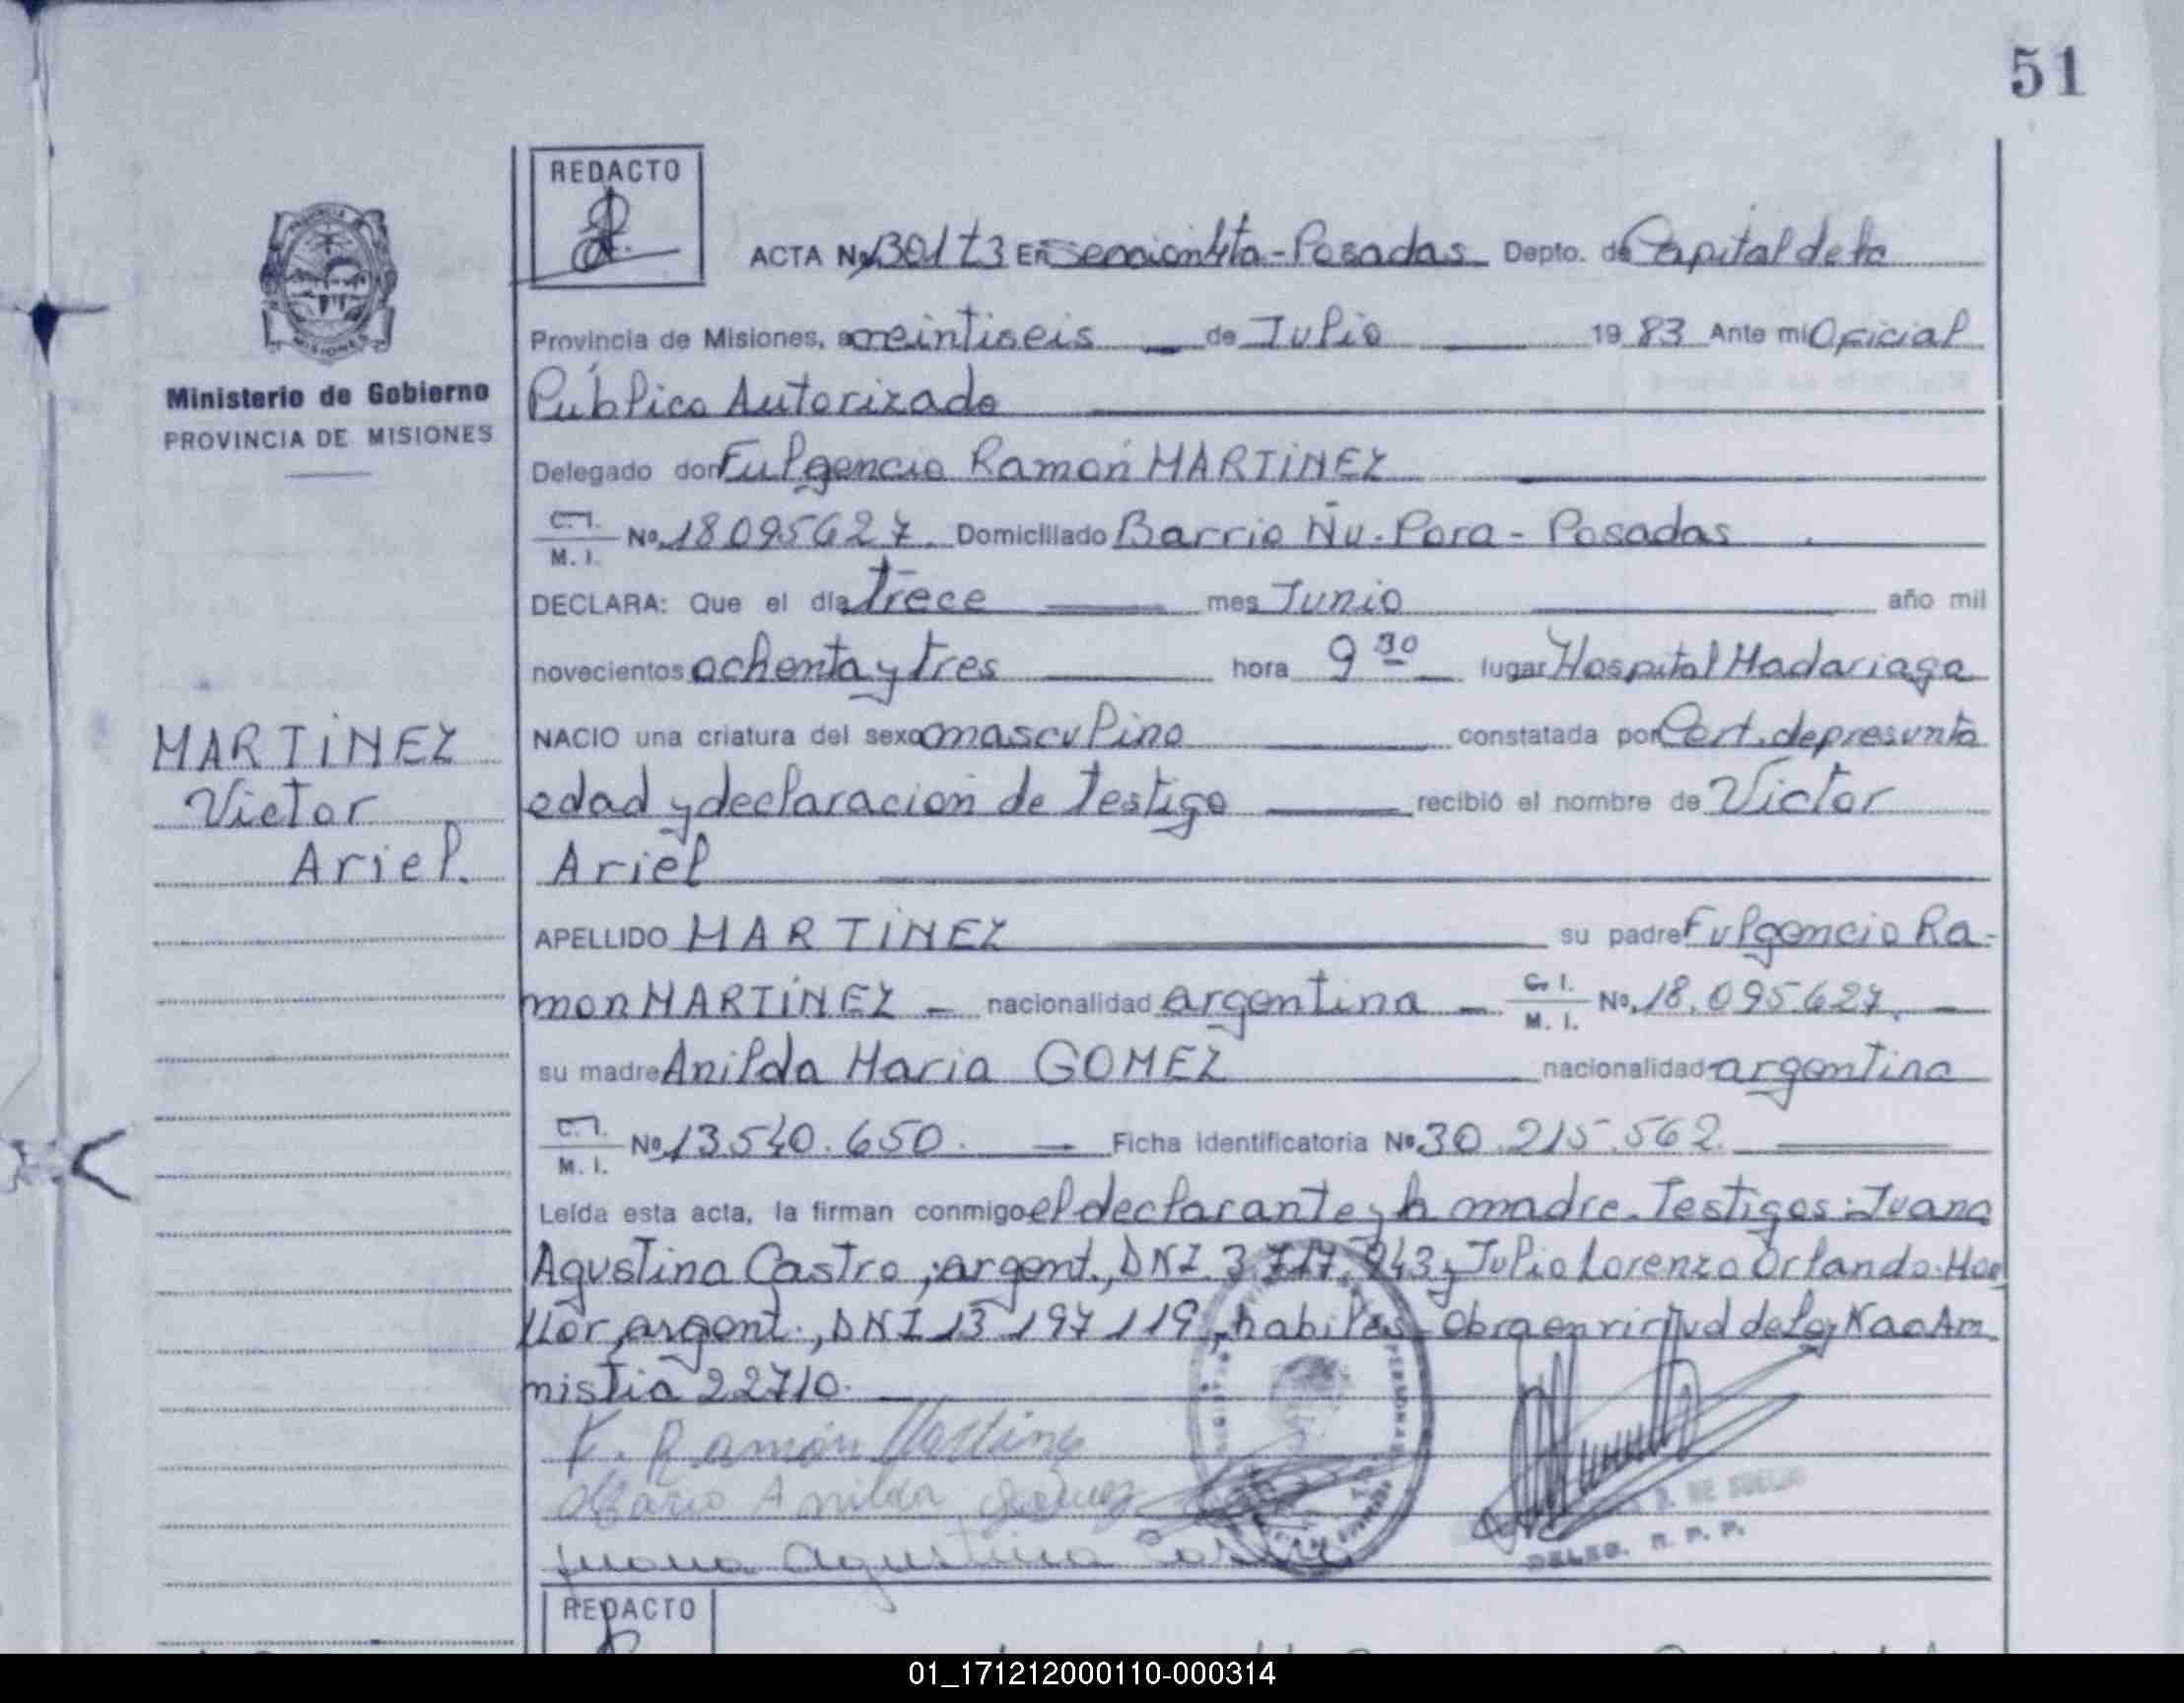 51
REDACTO
ACTA No 1301 T3 En Seccion 4ta - Posadas Depto. de Capital de la
Provincia de Misiones, a veintiseis de Julio 19 83 Ante mi Oficial
Público Autorizado
Ministerio de Gobierno
PROVINCIA DE MISIONES
Delegado don Fulgencio Ramón MARTINEZ
C.I. M. I. No. 18095627. Domiciliado Barrio Ñu-Pora - Posadas
DECLARA: Que el día Trece mes Junio año mil
novecientos ochenta y tres hora 9 30 lugar Hospital Madariaga
NACIO una criatura del sexo masculino constatada por Cert. de presunta
edad y declaracion de Testigo recibió el nombre de Victor
Ariel
MARTINEZ
Victor
Ariel.
APELLIDO MARTINEZ su padre Fulgencio Ra-
mon MARTINEZ nacionalidad argentina C. I. M. I. No. 18.095.627.
su madre Anilda Maria GOMEZ nacionalidad argentina
C.I. M. I. No 13540.650. Ficha identificatoria No 30.215.562.
Leída esta acta, la firman conmigo el declarante y la madre. Testigos: Juana
Agustina Castro, argent., DNI 3. y Julio Lorenzo Orlando
argent., DNI 13 197 119, habiles - Obra en virtud de Ley Nac Am
nistia 22710.
F. Ramón Martinez
Maria Anilda Gomez
Juana Agustina Castro
DELEG. R. P. P.
REDACTO
01_171212000110-000314